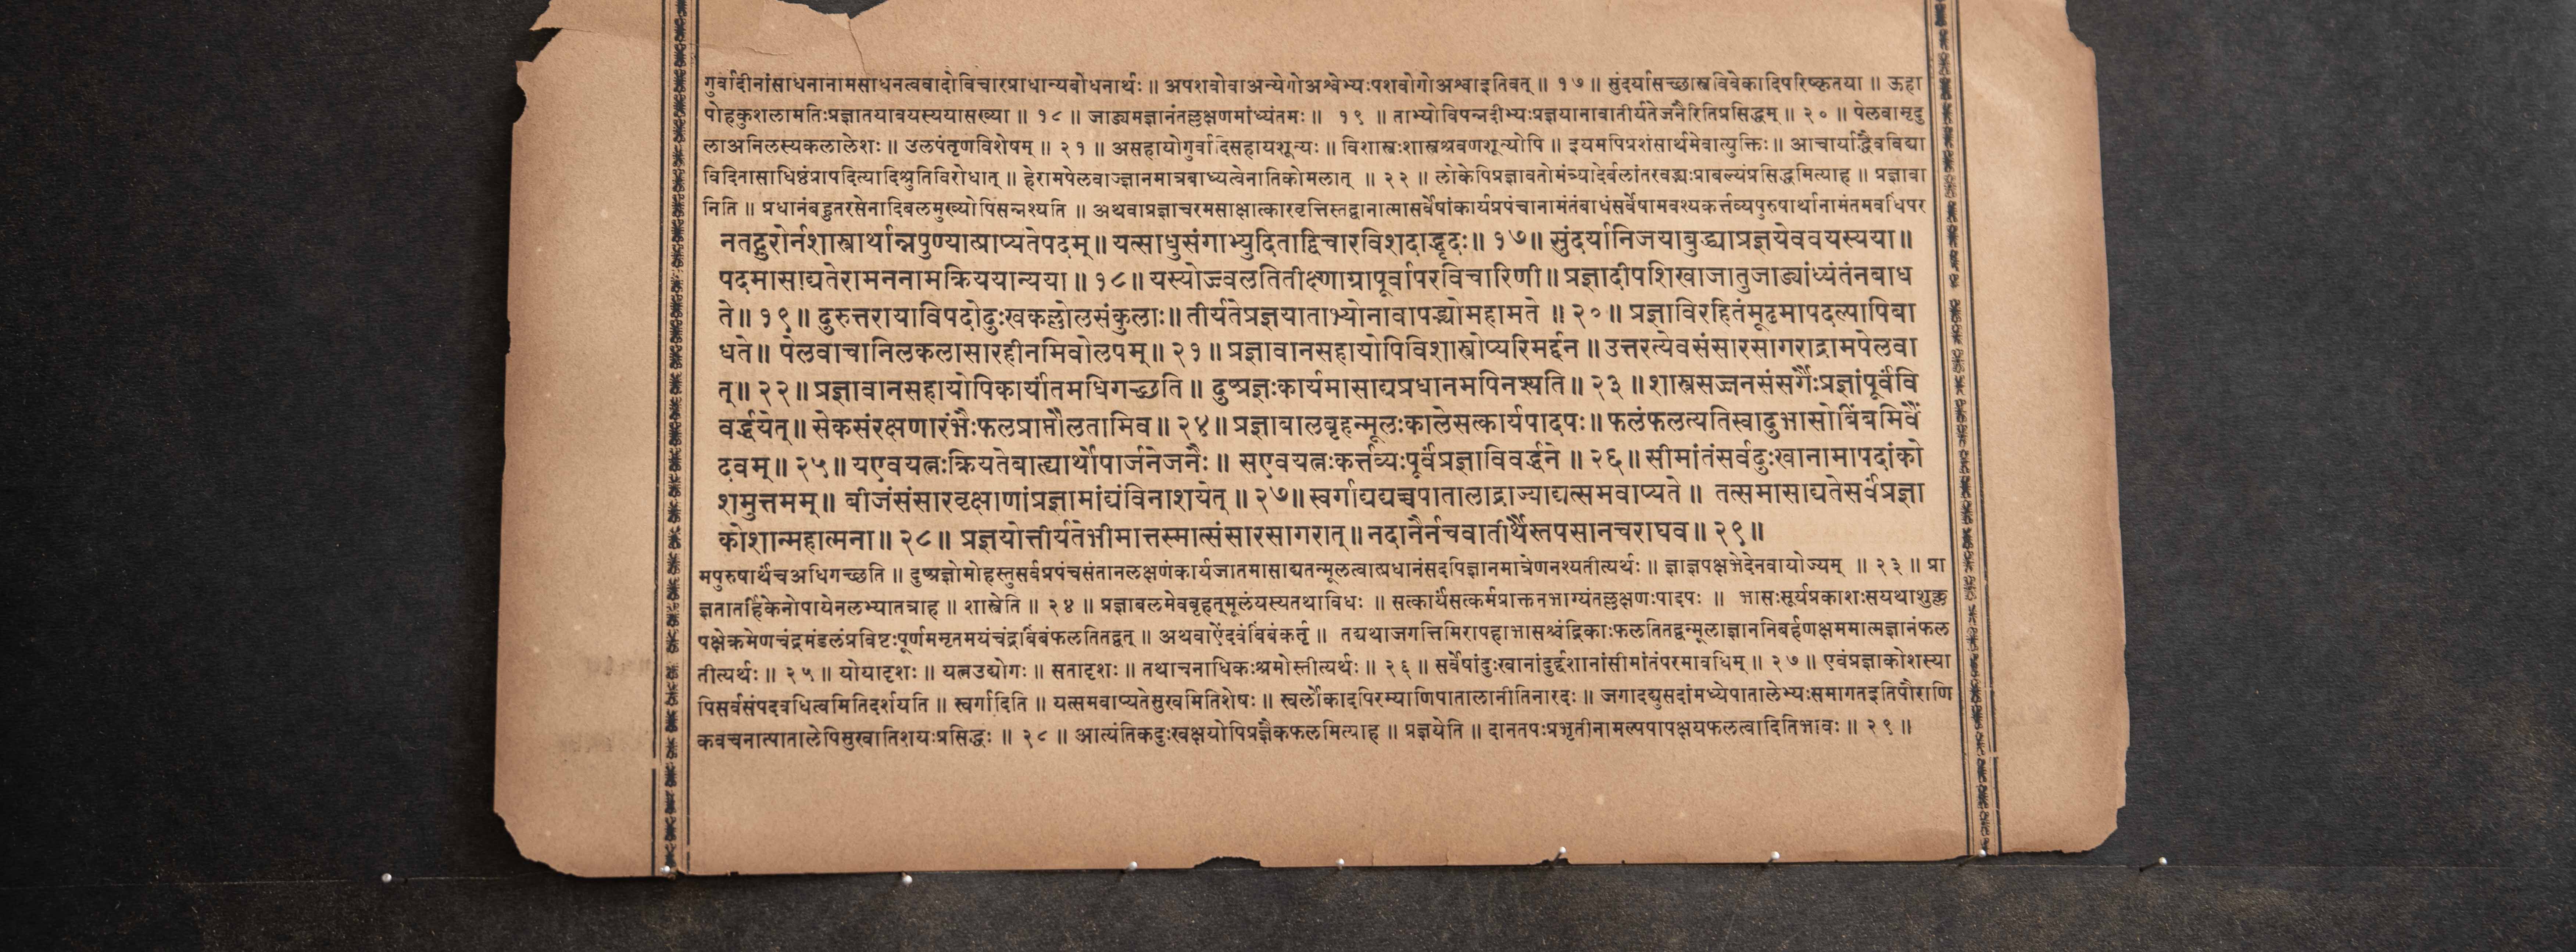 गुर्वादीनांसाधनानामसाधनत्ववादोविचारप्राधान्यबोधनार्थः ॥ अपशवोवाअन्येगोअश्वेभ्यःपशवोगोअश्वाइतिवत् ॥ १७ ॥ सुंदर्यासच्छास्त्रविवेकादिपरिष्कृतया ॥ ऊहा
पोहकुशलामतिःप्रज्ञातयावयस्ययासख्या ॥ १८ ॥ जाड्यमज्ञानंतल्लक्षणमांध्यंतमः ॥ १९ ॥ ताभ्योविपन्नदीभ्यःप्रज्ञयानावातीर्यतेजनैरितिप्रसिद्धम् ॥ २० ॥ पेलवामृदु
लाअनिलस्यकलालेशः ॥ उलपंतृणविशेषम् ॥ २१ ॥ असहायोगुर्वादिसहायशून्यः ॥ विशास्त्रःशास्त्रश्रवणशून्योपि ॥ इयमपिप्रशंसार्थमेवात्युक्तिः ॥ आचार्याद्धैवविद्या
विदितासाधिष्ठंप्रापदित्यादिश्रुतिविरोधात् ॥ हेरामपेलवाज्ज्ञानमात्रबाध्यत्वेनातिकोमलात् ॥ २२ ॥ लोकेपिप्रज्ञावतोमंत्र्यादेर्बलांतरवद्भ्यःप्राबल्यंप्रसिद्धमित्याह ॥ प्रज्ञावा
निति ॥ प्रधानंबहुतरसेनादिबलमुख्योपिसन्नश्यति ॥ अथवाप्रज्ञाचरमसाक्षात्कारवृत्तिस्तद्वानात्मासर्वेषांकार्यप्रपंचानामंतंबाधंसर्वेषामवश्यकर्त्तव्यपुरुषार्थानामंतमवधिंपर
नतद्गुरोर्नशास्त्रार्थान्नपुण्यात्प्राप्यतेपदम् ॥ यत्साधुसंगाभ्युदिताद्विचारविशदाद्धृदः ॥ १७ ॥ सुंदर्यानिजयाबुद्ध्याप्रज्ञयेववयस्यया ॥
पदमासाद्यतेरामननामक्रिययान्यया ॥ १८ ॥ यस्योज्ज्वलतितीक्ष्णाग्रापूर्वापरविचारिणी ॥ प्रज्ञादीपशिखाजातुजाड्यांध्यंतंनबाध
ते ॥ १९ ॥ दुरुत्तरायाविपदोदुःखकल्लोलसंकुलाः ॥ तीर्यतेप्रज्ञयाताभ्योनावापद्भ्योमहामते ॥ २० ॥ प्रज्ञाविरहितंमूढमापदल्पापिबा
धते ॥ पेलवाचानिलकलासारहीनमिवोलपम् ॥ २१ ॥ प्रज्ञावानसहायोपिविशास्त्रोप्यरिमर्द्दन ॥ उत्तरत्येवसंसारसागराद्रामपेलवा
त् ॥ २२ ॥ प्रज्ञावानसहायोपिकार्यांतमधिगच्छति ॥ दुष्प्रज्ञःकार्यमासाद्यप्रधानमपिनश्यति ॥ २३ ॥ शास्त्रसज्जनसंसर्गैःप्रज्ञांपूर्वंवि
वर्द्धयेत् ॥ सेकसंरक्षणारंभैःफलप्राप्तौलतामिव ॥ २४ ॥ प्रज्ञाबालबृहन्मूलःकालेसत्कार्यपादपः ॥ फलंफलत्यतिस्वादुभासोबिंबमिवैं
दवम् ॥ २५ ॥ यएवयत्नःक्रियतेबाह्यार्थोपार्जनेजनैः ॥ सएवयत्नःकर्त्तव्यःपूर्वंप्रज्ञाविवर्द्धने ॥ २६ ॥ सीमांतंसर्वदुःखानामापदांको
शमुत्तमम् ॥ बीजंसंसारवृक्षाणांप्रज्ञामांद्यंविनाशयेत् ॥ २७ ॥ स्वर्गाद्यद्यच्चपातालाद्राज्याद्यत्समवाप्यते ॥ तत्समासाद्यतेसर्वंप्रज्ञा
कोशान्महात्मना ॥ २८ ॥ प्रज्ञयोत्तीर्यतेभीमात्तस्मात्संसारसागरात् ॥ नदानैर्नचवातीर्थैस्तपसानचराघव ॥ २९ ॥
मपुरुषार्थंचअधिगच्छति ॥ दुष्प्रज्ञोमोहस्तुसर्वप्रपंचसंतानलक्षणंकार्यजातमासाद्यतन्मूलत्वात्प्रधानंसदपिज्ञानमात्रेणनश्यतीत्यर्थः ॥ ज्ञाज्ञपक्षभेदेनवायोज्यम् ॥ २३ ॥ प्रा
ज्ञतातर्हिकेनोपायेनलभ्यातत्राह ॥ शास्त्रेति ॥ २४ ॥ प्रज्ञाबलमेवबृहत्मूलंयस्यतथाविधः ॥ सत्कार्यंसत्कर्मप्राक्तनभाग्यंतल्लक्षणःपादपः ॥ भासःसूर्यप्रकाशःसयथाशुक्ल
पक्षेक्रमेणचंद्रमंडलंप्रविष्टःपूर्णममृतमयंचंद्रबिंबंफलतितद्वत् ॥ अथवाऐंदवंबिंबंकर्तृ ॥ तद्यथाजगत्तिमिरापहाभासश्चंद्रिकाःफलतितद्वन्मूलाज्ञाननिबर्हणक्षममात्मज्ञानंफल
तीत्यर्थः ॥ २५ ॥ योयादृशः ॥ यत्नउद्योगः ॥ सतादृशः ॥ तथाचनाधिकःश्रमोस्तीत्यर्थः ॥ २६ ॥ सर्वेषांदुःखानांदुर्द्दशानांसीमांतंपरमावधिम् ॥ २७ ॥ एवंप्रज्ञाकोशस्या
पिसर्वसंपदवधित्वमितिदर्शयति ॥ स्वर्गादिति ॥ यत्समवाप्यतेसुखमितिशेषः ॥ स्वर्लोकादपिरम्याणिपातालानीतिनारदः ॥ जगादद्युसदांमध्येपातालेभ्यःसमागतइतिपौराणि
कवचनात्पातालेपिसुखातिशयःप्रसिद्धः ॥ २८ ॥ आत्यंतिकदुःखक्षयोपिप्रज्ञैकफलमित्याह ॥ प्रज्ञयेति ॥ दानतपःप्रभृतीनामल्पपापक्षयफलत्वादितिभावः ॥ २९ ॥